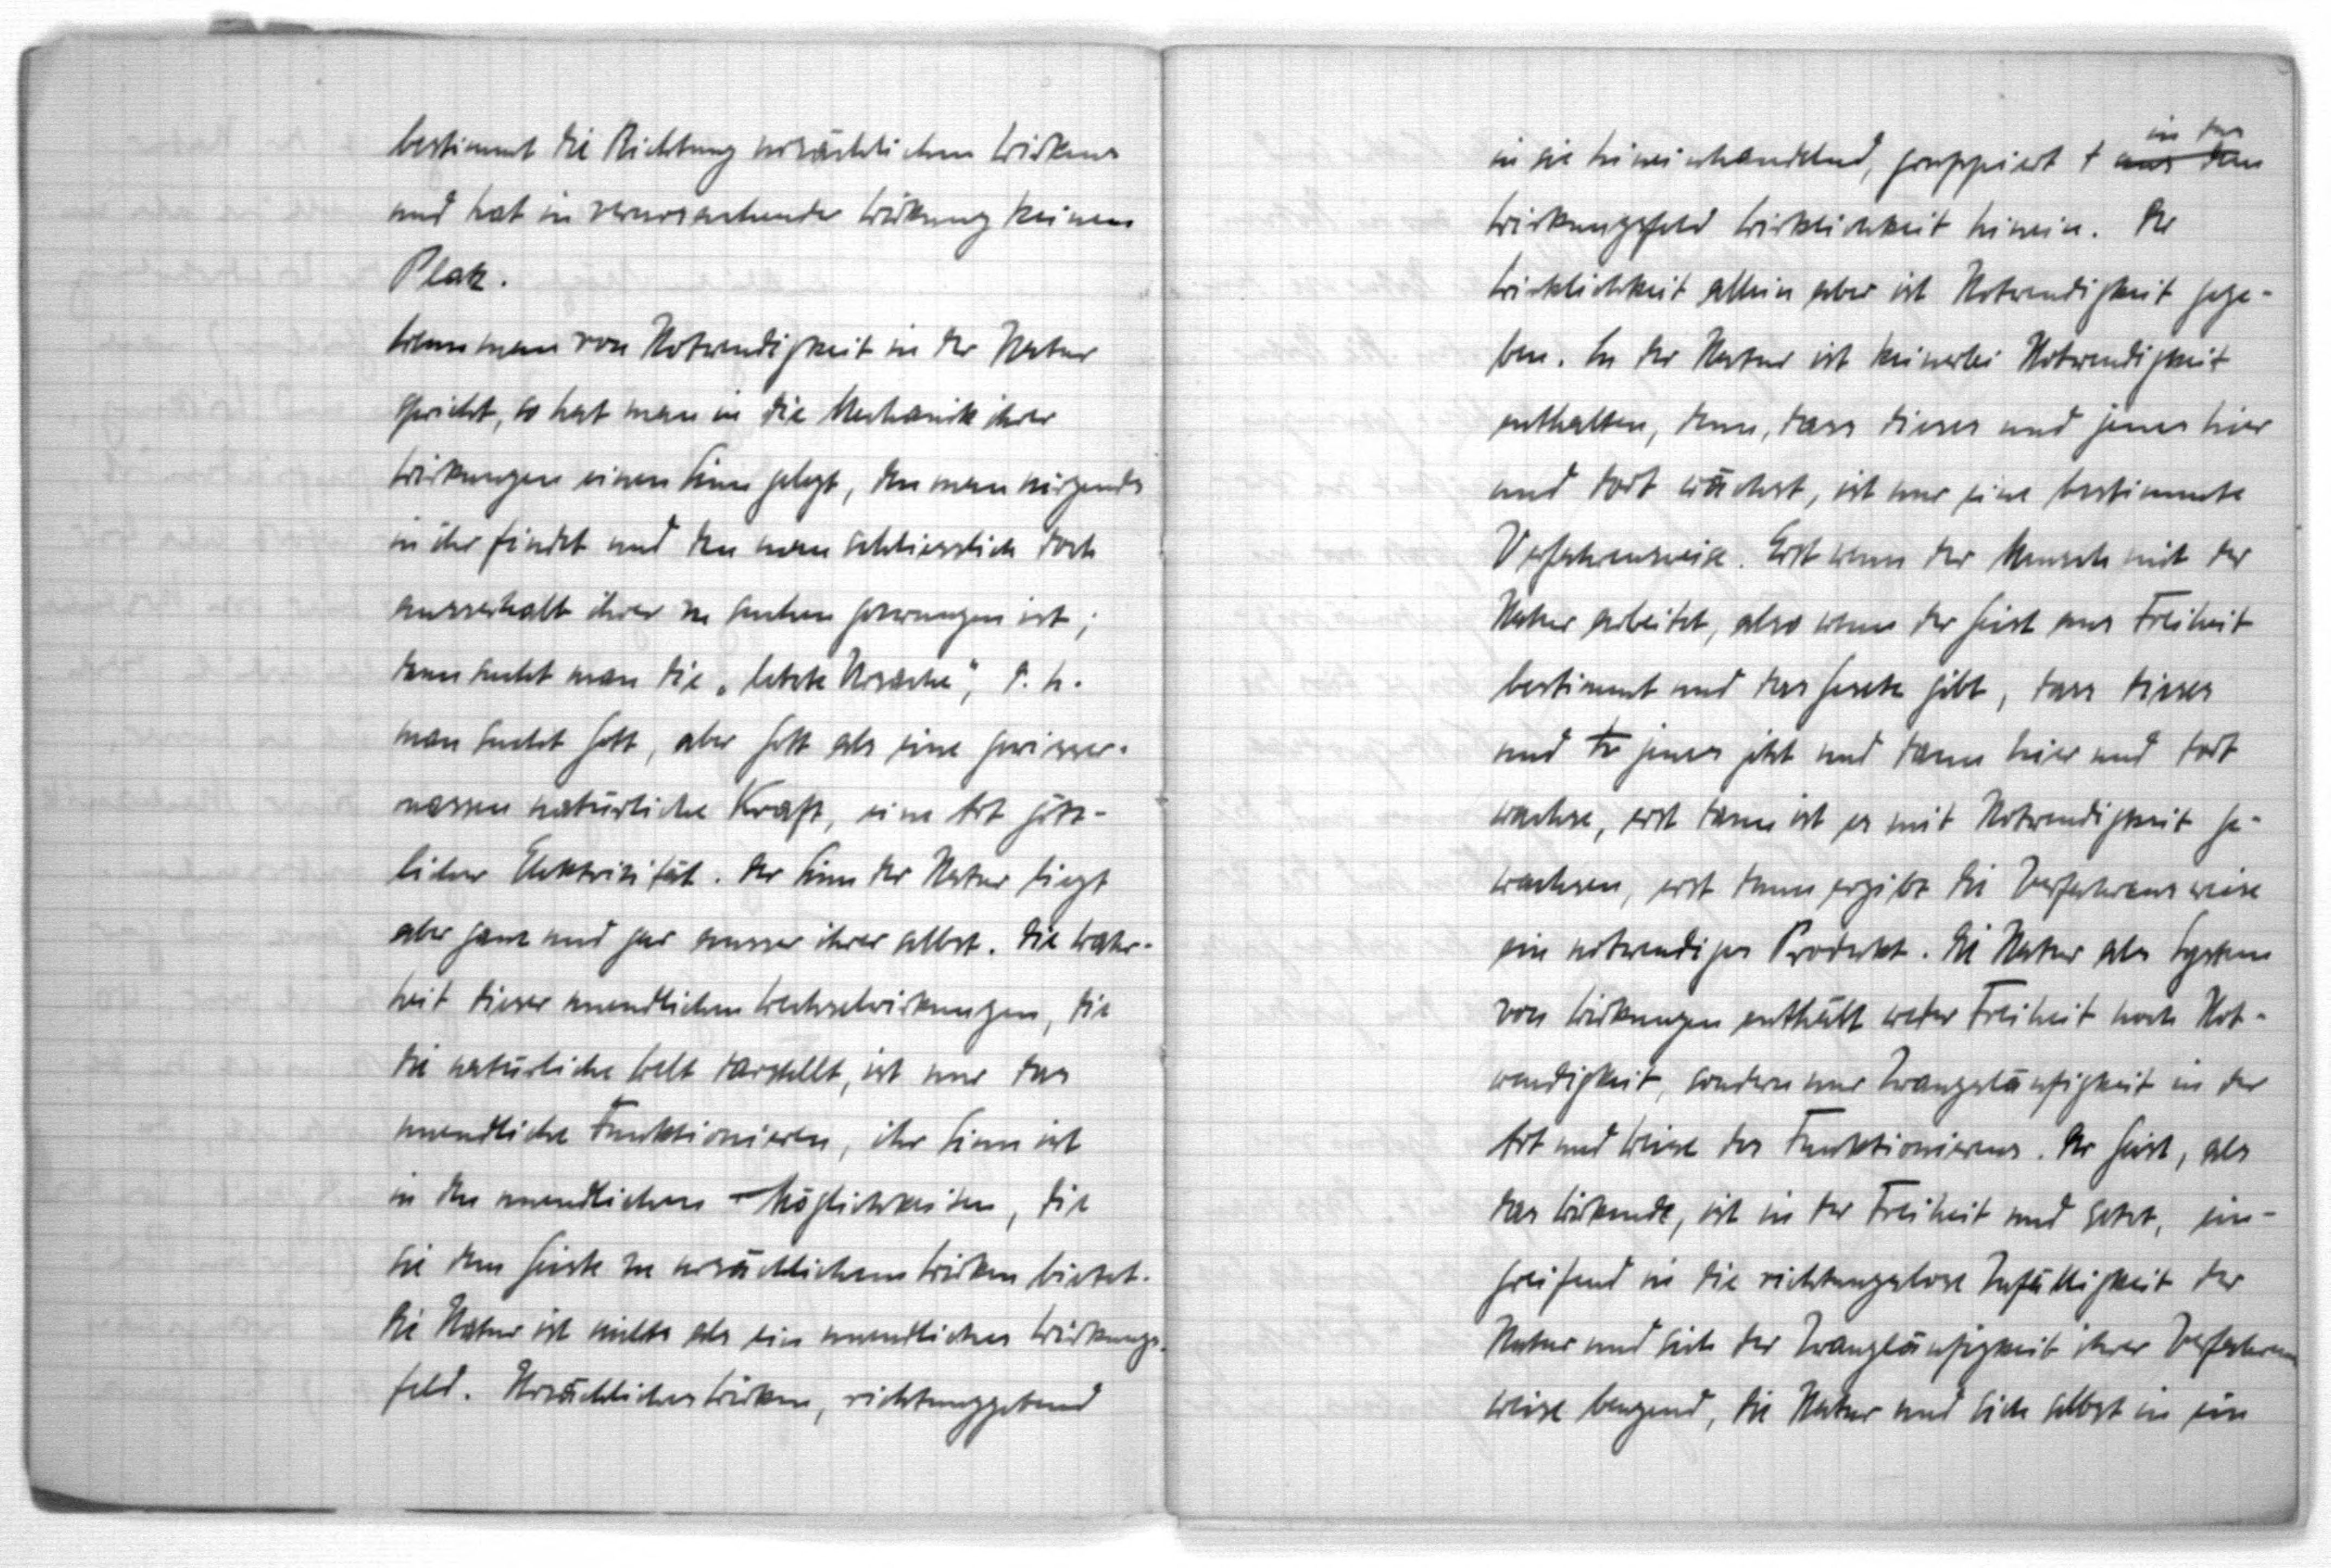 bestimmt die Richtung ursächlichen Wirkens
und hat in verursachender Wirkung keinen
Platz.
Wenn man von Notwendigkeit in der Natur
spricht, so hat man in die Mechanik ihrer
Wirkungen einen Sinn gelegt, den man nirgends
in ihr findet und den man schliesslich doch
ausserhalb ihrer zu suchen gezwungen ist;
dann sucht man die „letzte Ursache", d. h.
man sucht Gott, aber Gott als eine gewisser-
massen natürliche Kraft, eine Art gött-
licher Elektrizität. Der Sinn der Natur liegt
aber ganz und gar ausser ihrer selbst. Die Wahr-
heit dieser unendlichen Wechselwirkungen, die
die natürliche Welt darstellt, ist nur das
unendliche Funktionieren, ihr Sinn ist
in den unendlichen Möglichkeiten, die
sie dem Geiste zu ursächlichem Wirken bietet.
Die Natur ist nichts als ein unendliches Wirkungs-
feld. Ursächliches Wirken, richtunggebend
in sie hineinhandelnd, gruppiert + in das
aus dem
Wirkungsfeld Wirklichkeit hinein. Der
Wirklichkeit allein aber ist Notwendigkeit gege-
ben. In der Natur ist keinerlei Notwendigkeit
enthalten, denn, dass dieses und jenes hier
und dort wächst, ist nur eine bestimmte
Verfahrensweise. Erst wenn der Mensch mit der
Natur arbeitet, also wenn der Geist aus Freiheit
bestimmt und das Gesetz gibt, dass dieses
und jenes jetzt und dann hier und dort
wachse, erst dann ist es mit Notwendigkeit ge-
wachsen, erst dann ergibt die Verfahrensweise
ein notwendiges Produkt. Die Natur als System
von Wirkungen enthält weder Freiheit noch Not-
wendigkeit, sondern nur Zwangsläufigkeit in der
Art und Weise des Funktionierens. Der Geist, als
das Wirkende, ist in der Freiheit und setzt, ein-
greifend in die richtungslose Zufälligkeit der
Natur und sich der Zwangläufigkeit ihrer Verfahrens
weise beugend, die Natur und sich selbst in ein